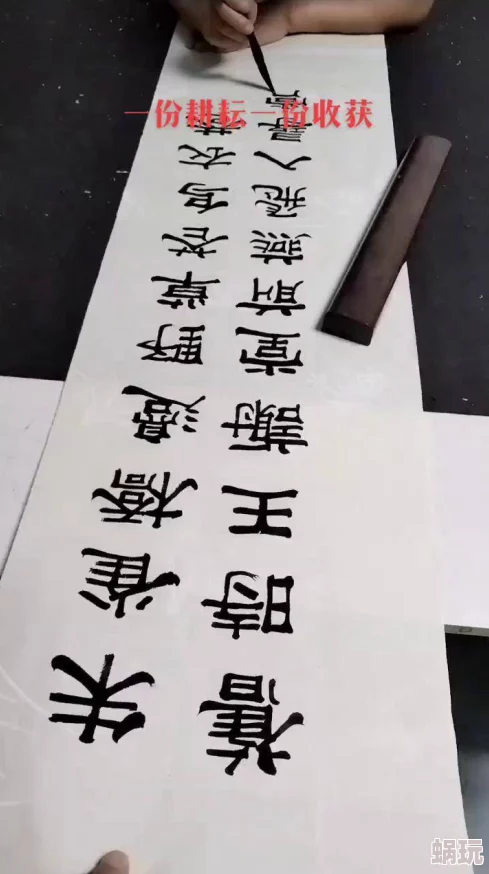 一份耕耘一份收获
朱雀橋邊野草花烏衣巷
舊時王謝堂前燕飛入尋常
蜗玩